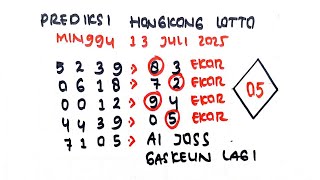 PREDIKSI HONGKONG LOTTO
MINGGU 13 JULI 2025
5 2 3 9 > 8 3 EKOR
0 6 1 8 > 7 2 EKOR
0 0 1 2 > 9 4 EKOR
4 4 3 9 > 0 5 EKOR
7 1 0 5 > AI JOSS
GASKEUN LAGI
05